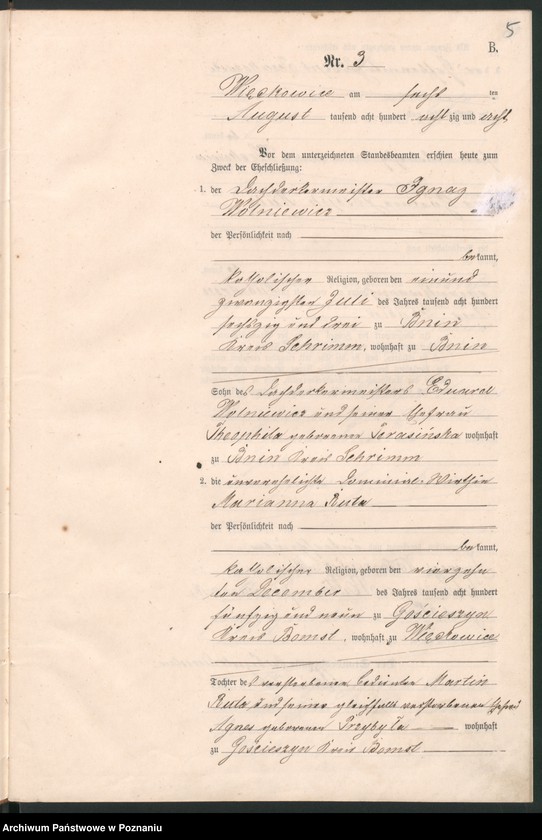 5
B.
Nr. 3
Więckowice am sechs ten
August tausend acht hundert acht zig und acht
Vor dem unterzeichneten Standesbeamten erschien heute zum
Zweck der Eheschließung:
1. der Dachdeckermeister Ignaz
Wolniewicz
der Persönlichkeit nach
be kannt,
katolischer Religion, geboren den einund
zwanzigsten Juli des Jahres tausend acht hundert
sechszig und drei zu Bnin
Kreis Schrimm, wohnhaft zu Bnin
Sohn des Dachdeckermeisters Eduard
Wolniewicz und seiner Ehefrau
Theophila geborener Terasińska wohnhaft
zu Bnin Kreis Schrimm
2. die unverehelichte Dominial-Wirthin
Marianna Ruta
der Persönlichkeit nach
be kannt,
katolischer Religion, geboren den vierzehn
ten December des Jahres tausend acht hundert
fünfzig und neun zu Gościeszyn
Kreis Bomst, wohnhaft zu Więckowice
Tochter des verstorbenen Bedienter Martin
Ruta und seiner gleichfalls verstorbenen Ehefrau
Agnes geborenen Przybyła wohnhaft
zu Gościeszyn Kreis Bomst
Archiwum Państwowe w Poznaniu